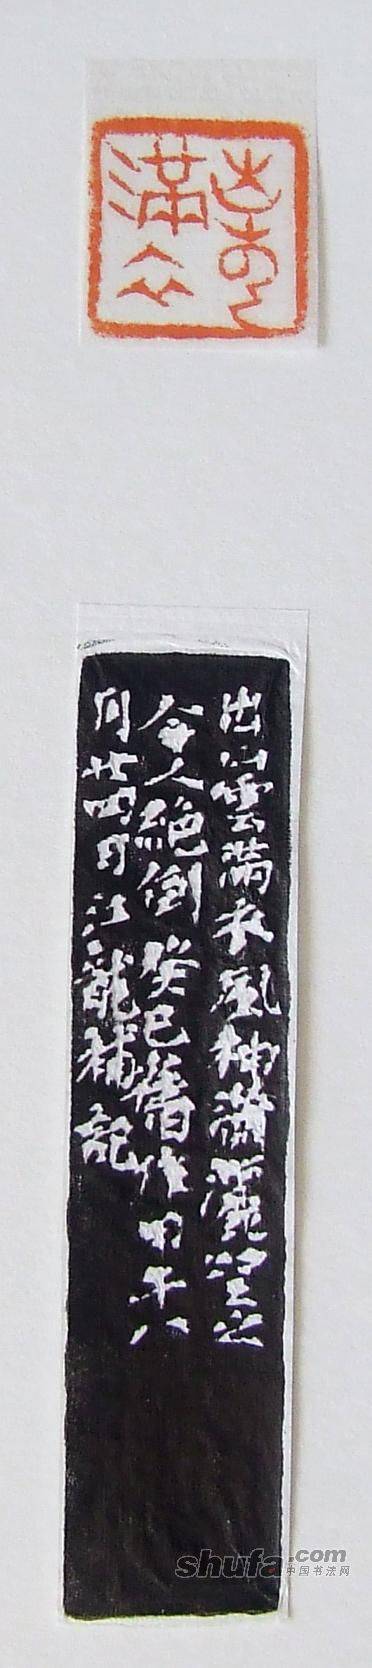 出山雲滿衣風神瀟灑望之
令人絕倒癸巳舊作甲午八
月廿四日江龍補記
shufa.com
中国书法网